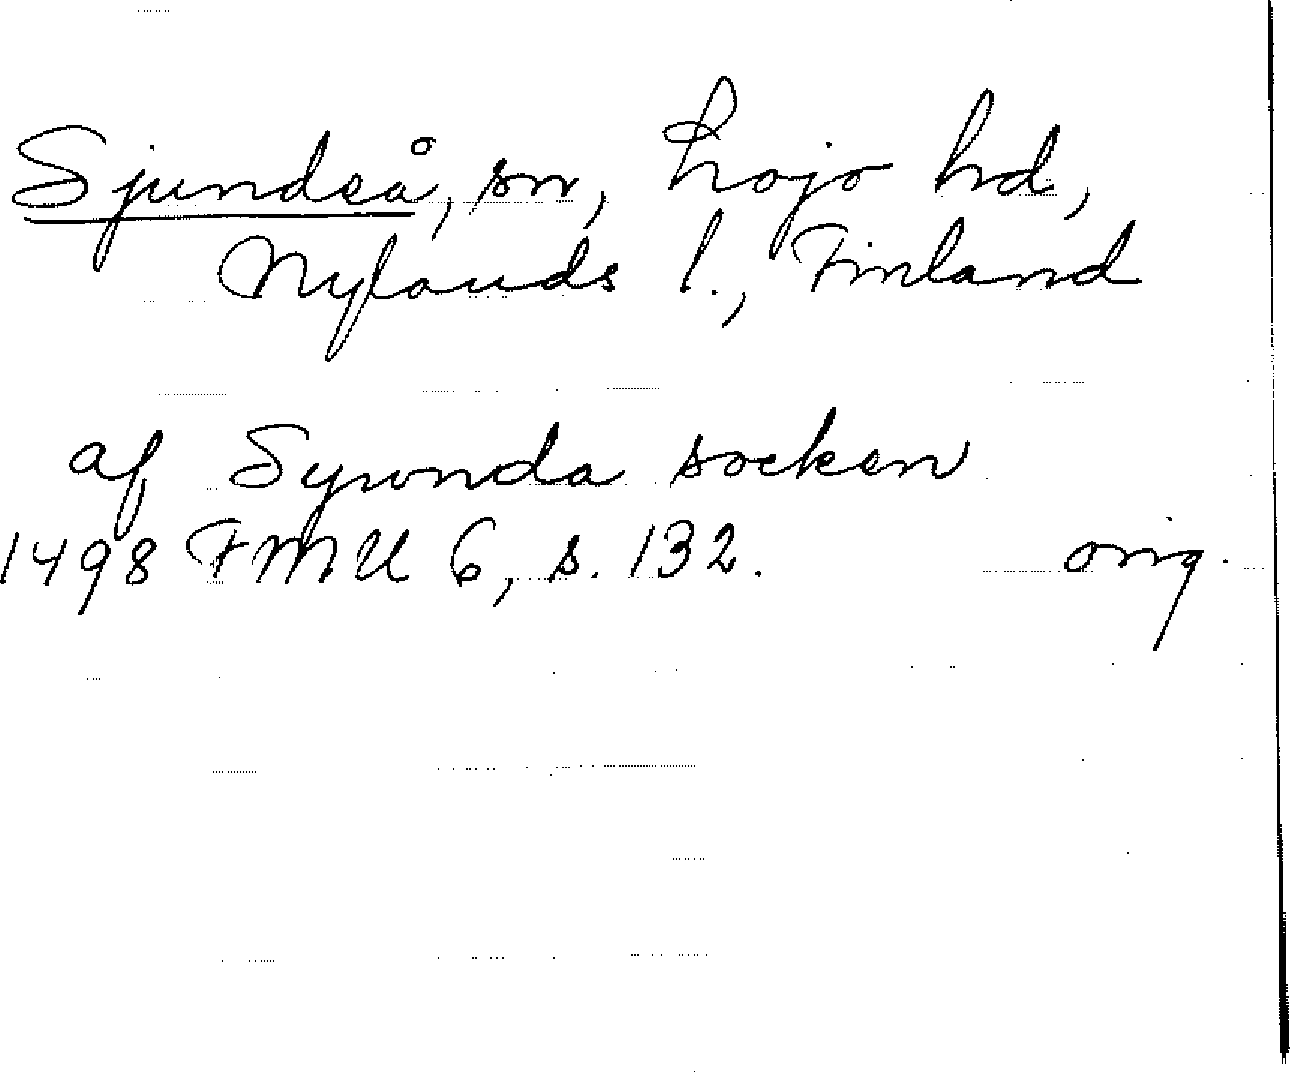 Sjundeå, sn, Lojo hd,
Nylands l., Finland
af Sywnda socken
1498 FMU 6, s. 132. orig.